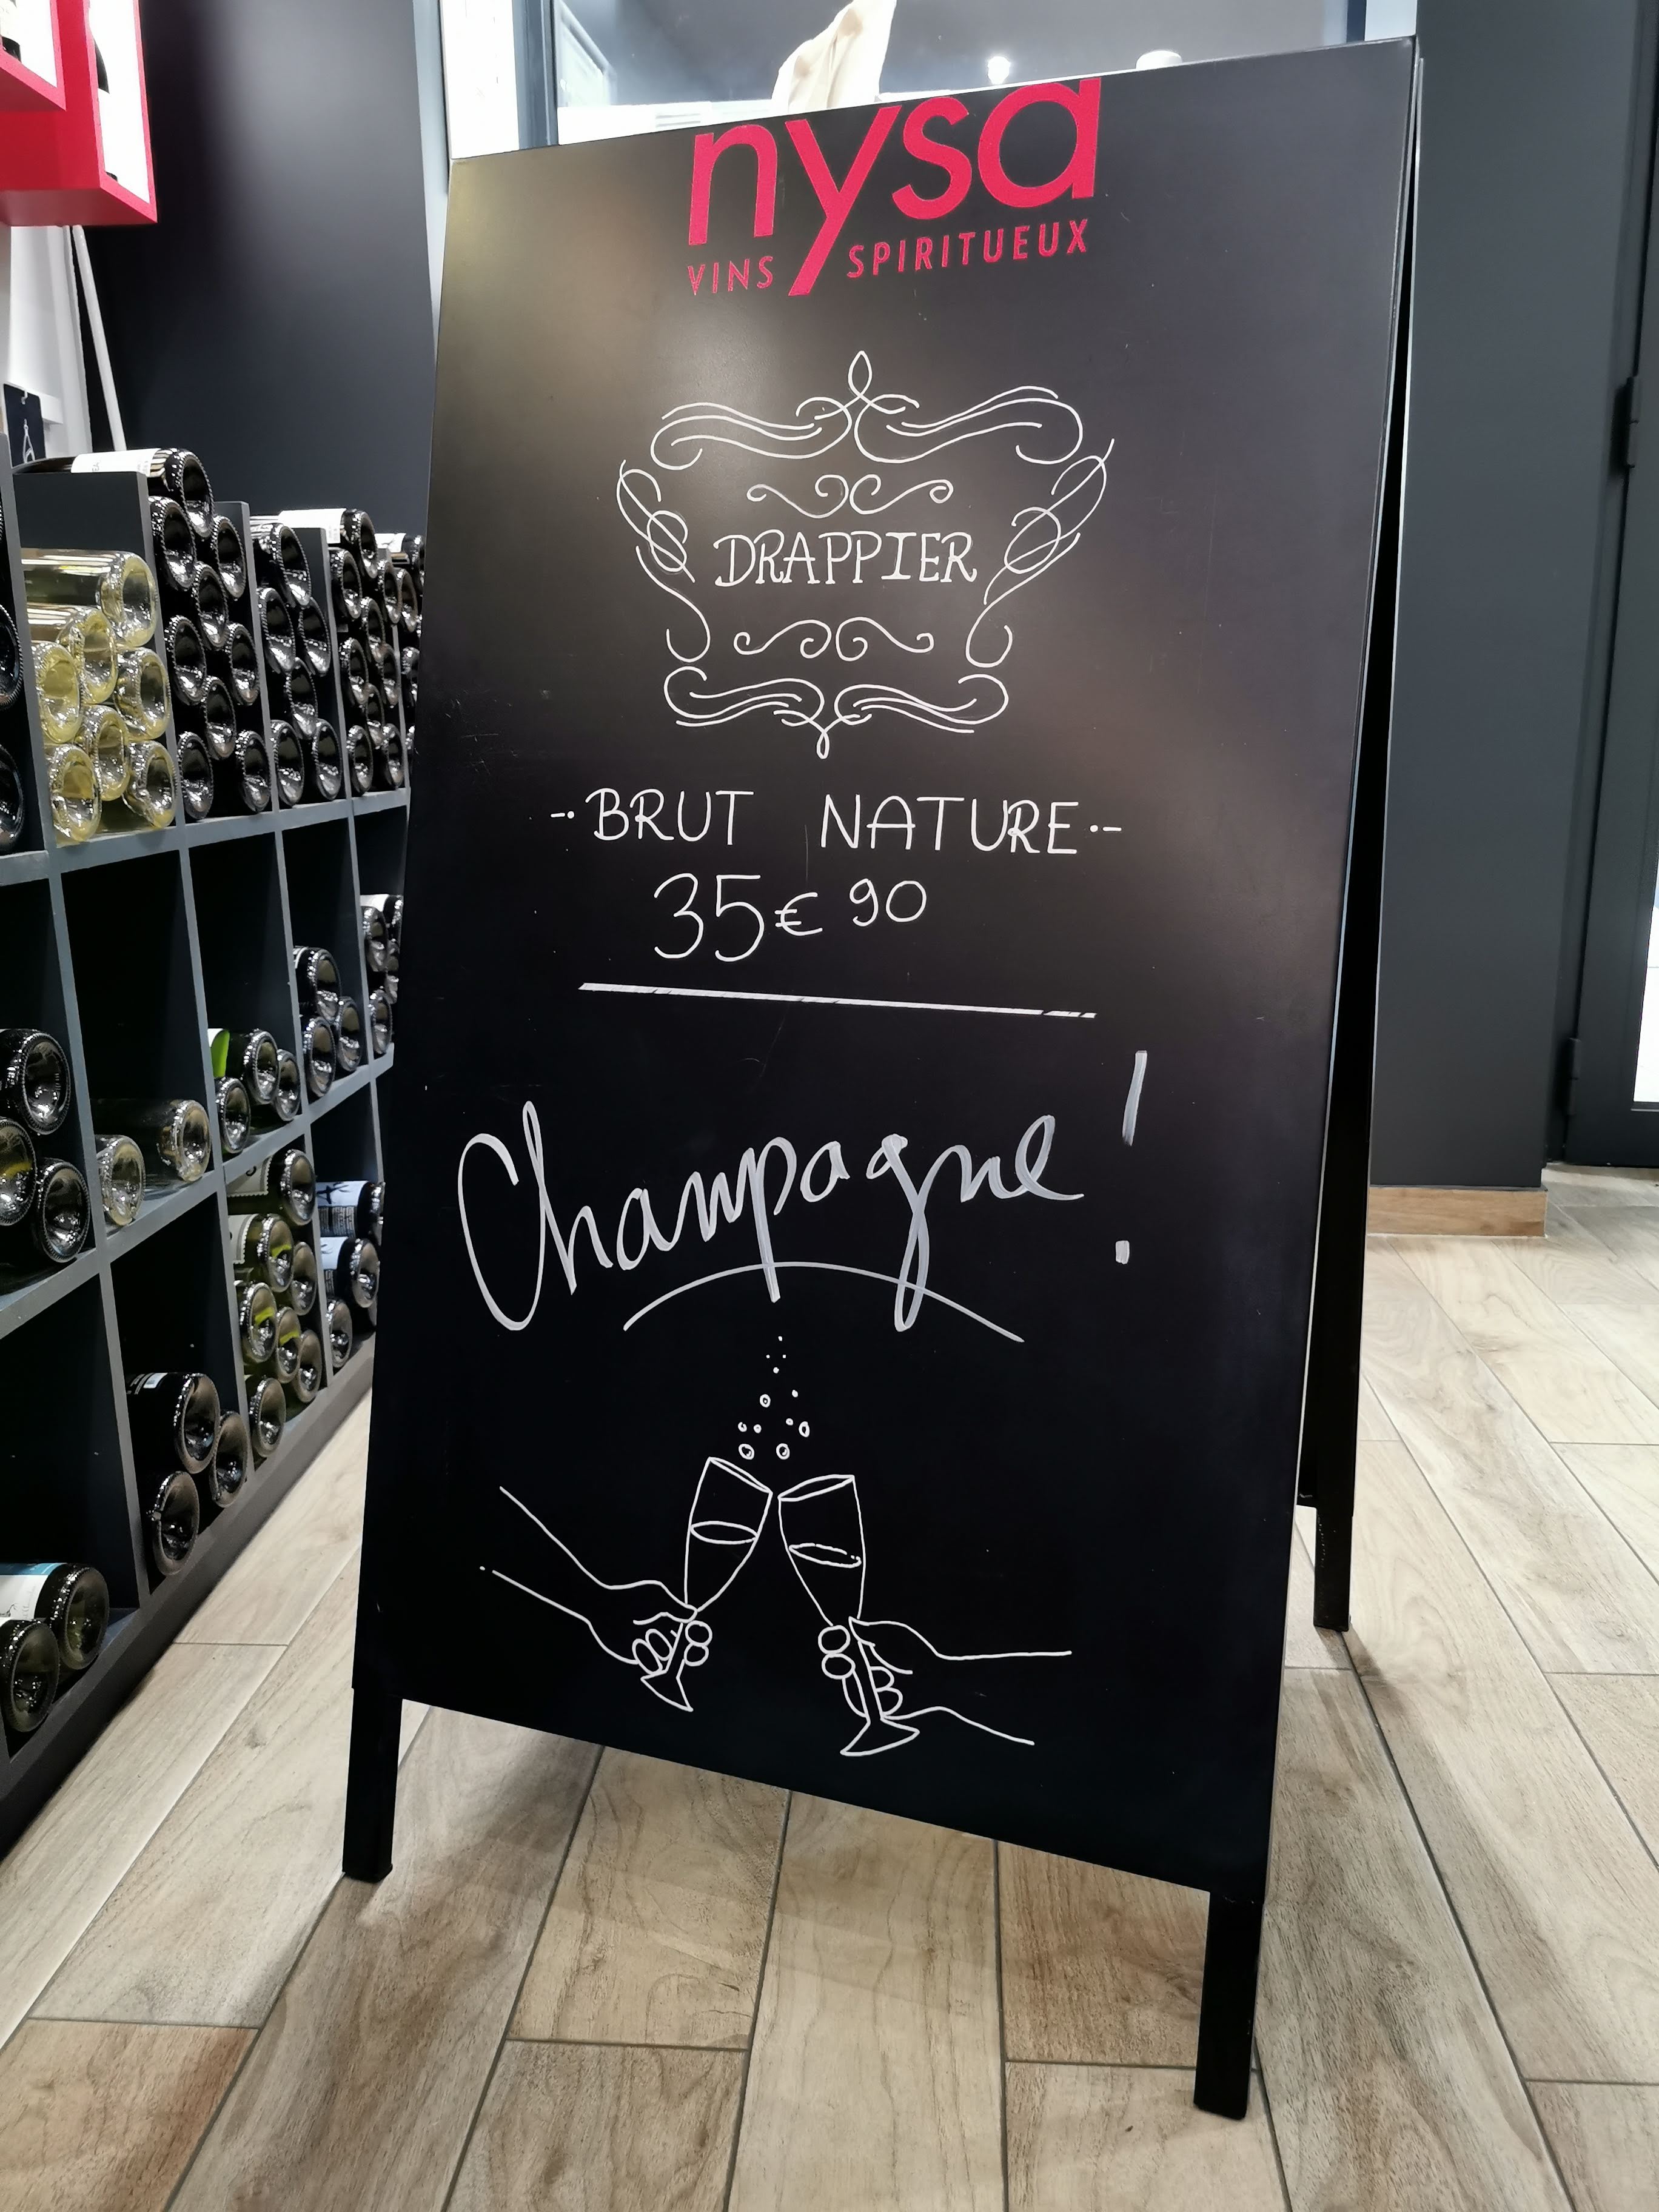 nysa
VINS SPIRITUEUX
DRAPPIER
-·BRUT NATURE·-
35€90
Champagne!